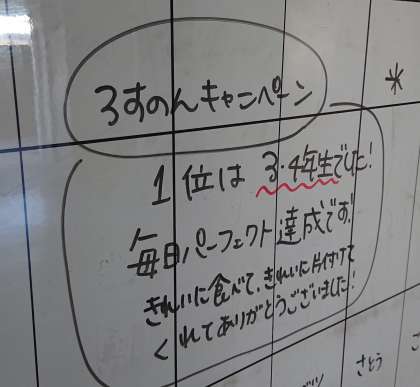 3すのんキャンペーン
*
1位は3・4年生でした!
毎日パーフェクト達成です!
きれいに食べて、きれいに片付けて
くれてありがとうございました!
さとう